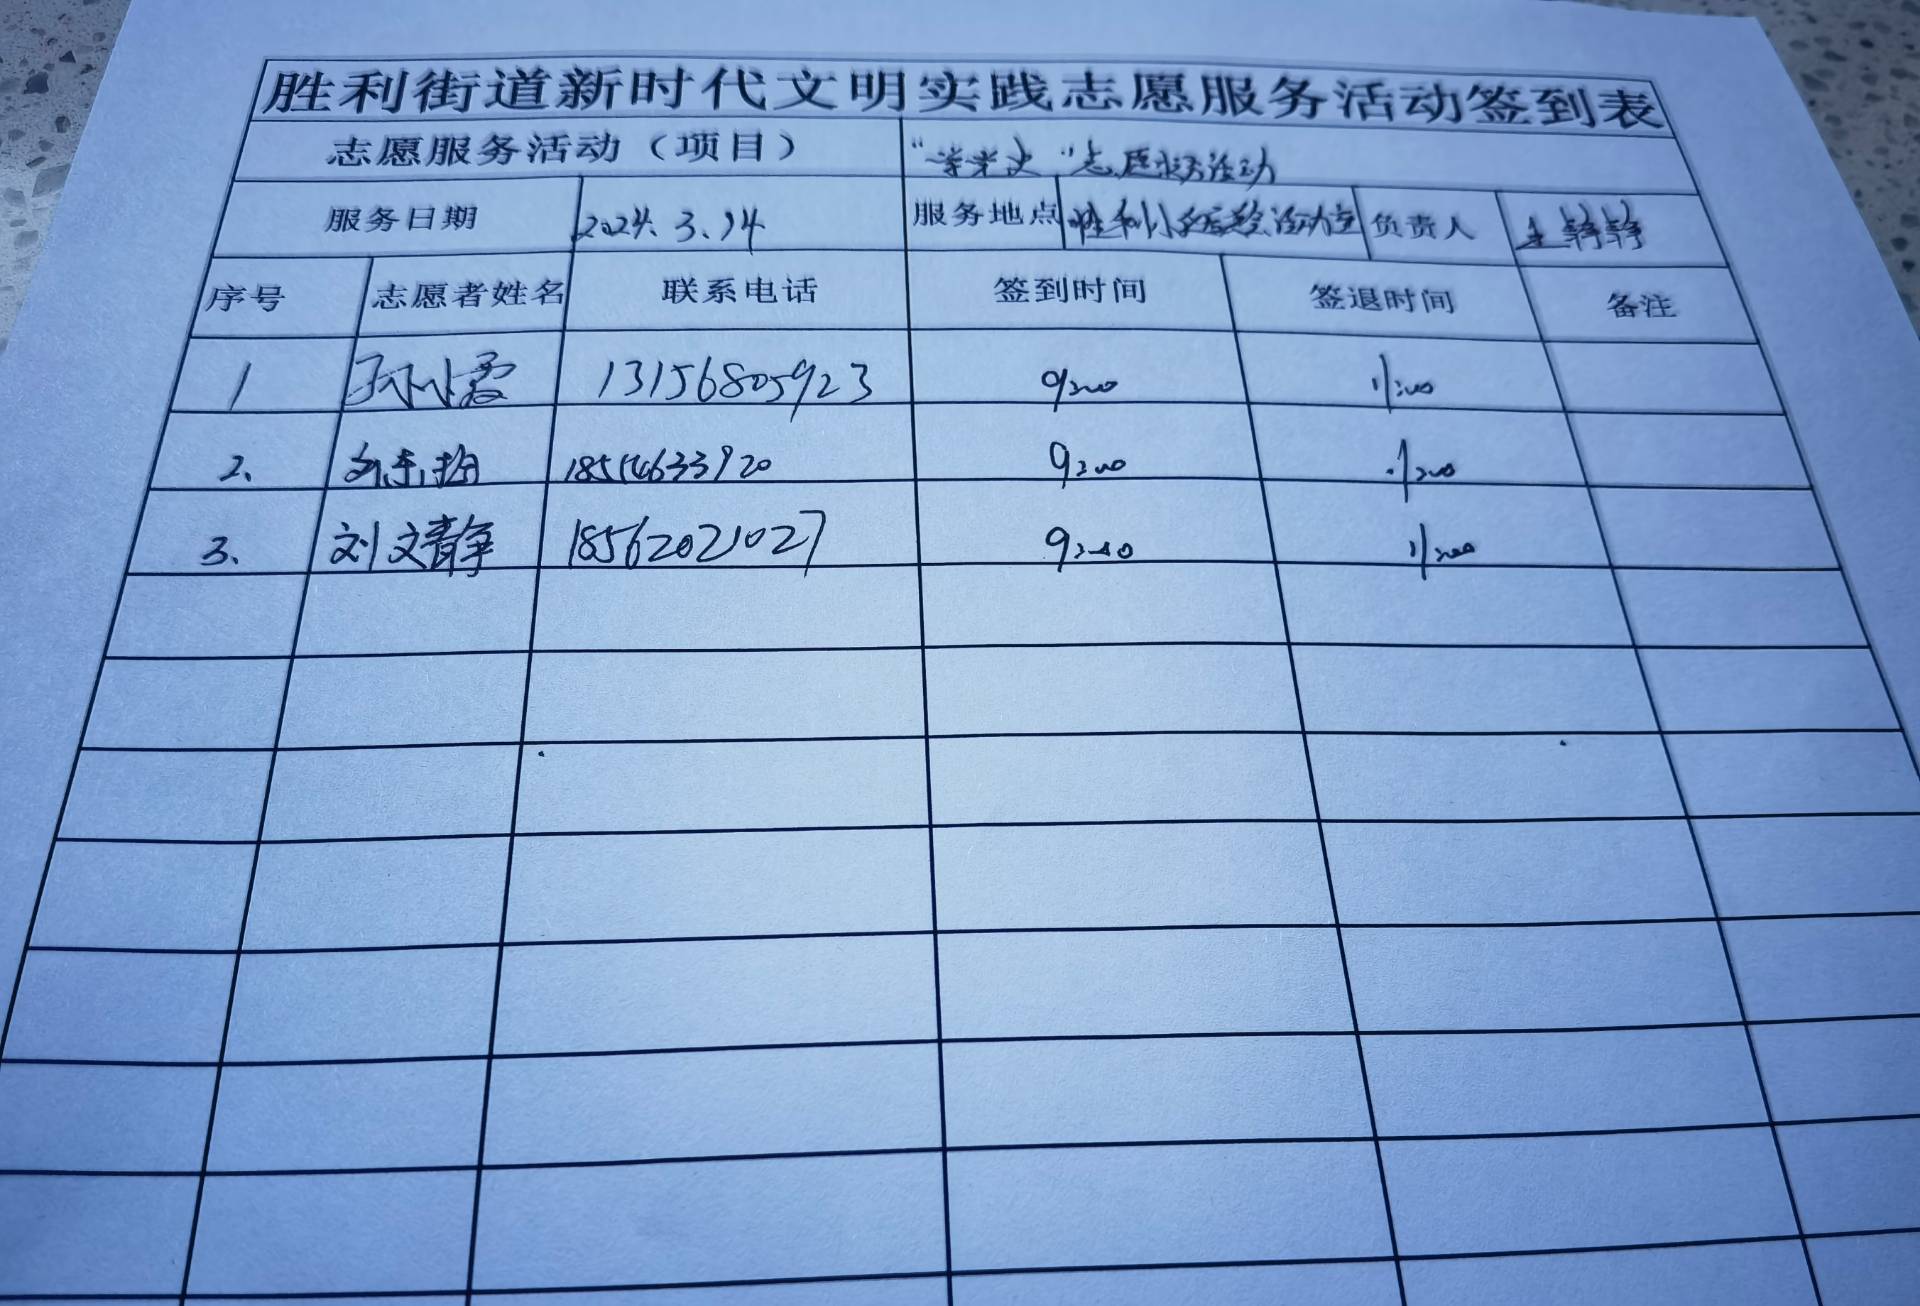 胜利街道新时代文明实践志愿服务活动签到表
志愿服务活动（项目） "学党史"志愿服务活动
服务日期 2024.3.14 服务地点 胜利小区 活动室 负责人 王静静
序号 志愿者姓名 联系电话 签到时间 签退时间 备注
1 孙小霞 13156805923 9:00 11:00
2、 9:00 11:00
3、 刘文静 18562021027 9:00 11:00